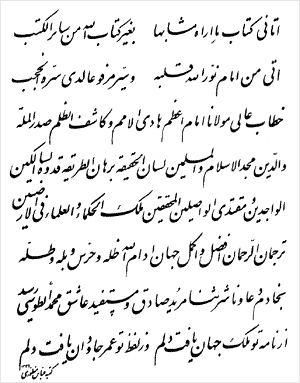 اتانی کتاب ما اراه مشابها بغیر کتاب الله من سایر الکتب
اتی من امام نور الله قلبه وسیر مرفوعا لدی سره الحجب
خطاب عالی مولانا امام اعظم هادی الامم و کاشف الظلم صدر المله
والدین مجد الاسلام والمسلمین لسان الحقیقه برهان الطریقه قدوه السالکین
الواجدین و مقتدی الواصلین المحققین ملک الحکماء و العلماء فی الارضین
ترجمان الرحمان افضل و اکمل جهان ادام الله ظله و حرس وبله و طله
بخادم دعا و ناشر ثنا مرید صادق و مستفید عاشق محمد الطوسی رسید
از نامه تو ملک جهان یافت دلم وز لفظ تو عمر جاودان یافت دلم